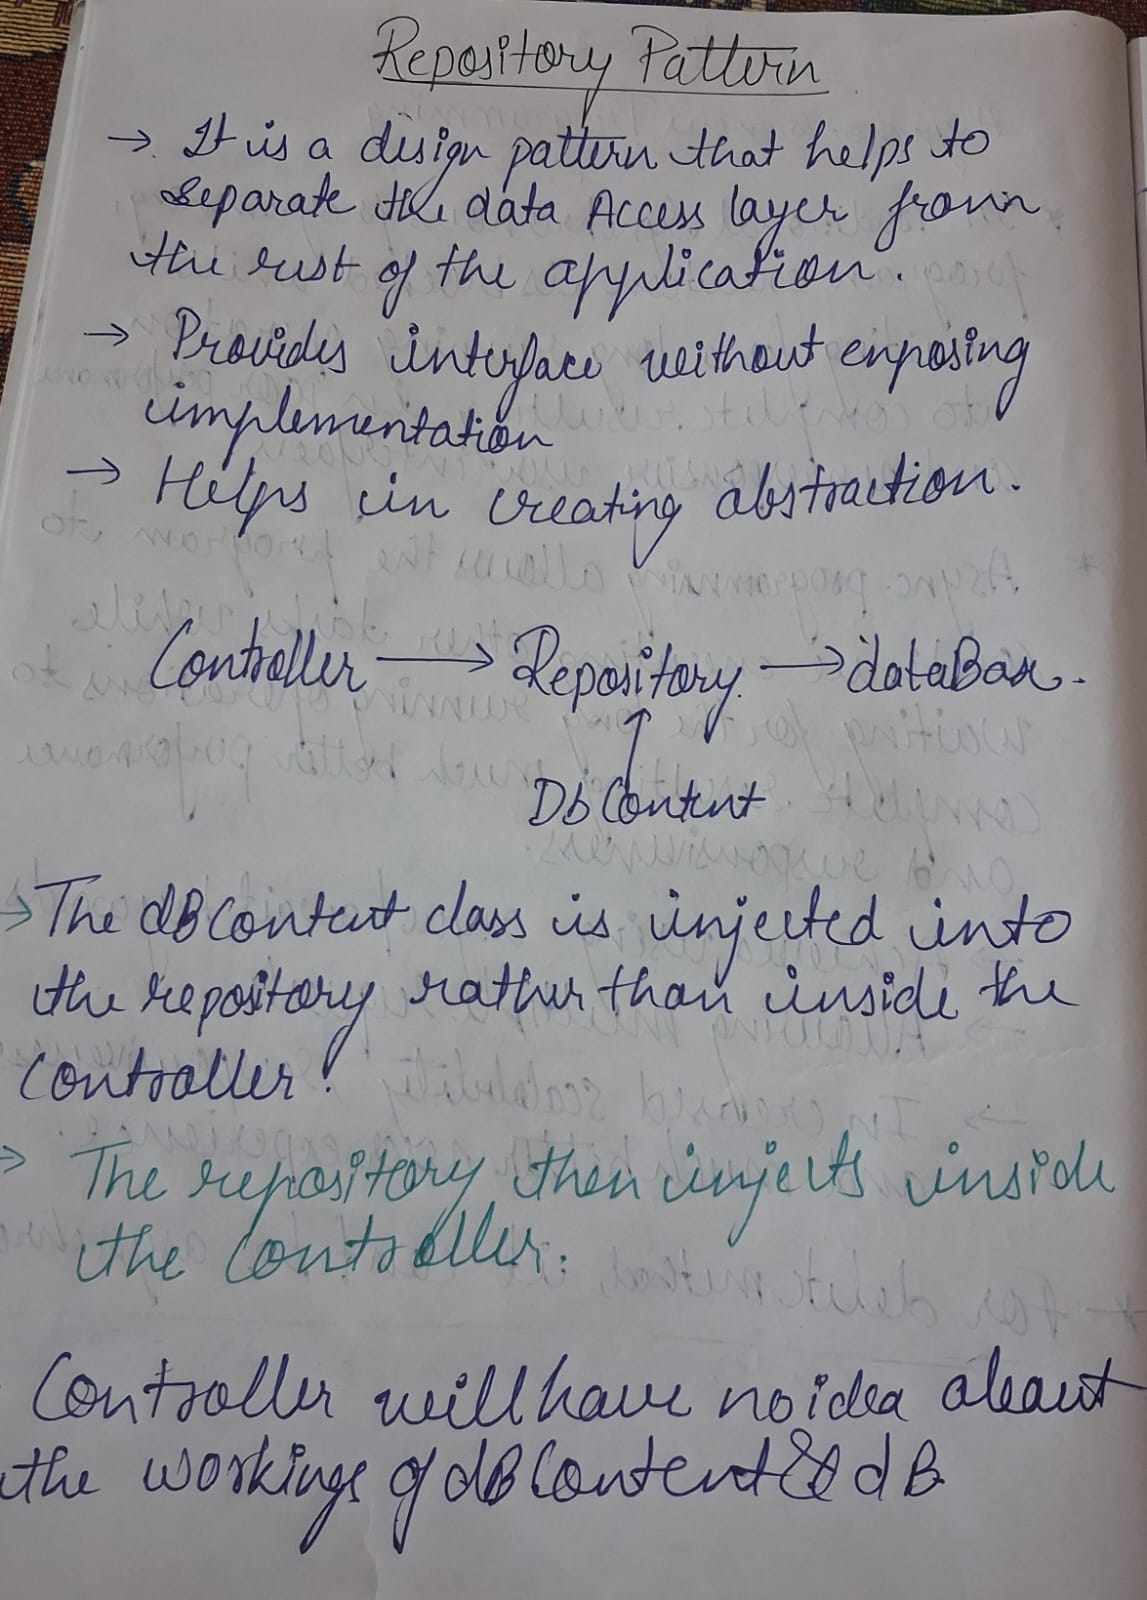 Repository Pattern
→ It is a design pattern that helps to
separate the data Access layer from
the rest of the application.
→ Provides interface without exposing
implementation
→ Helps in creating abstraction.
Controller → Repository → dataBase.
↑
Db Context
→ The dB Context class is injected into
the repository rather than inside the
Controller.
→ The repository then injects inside
the Controller.
Controller will have no idea about
the workings of dB Context & dB